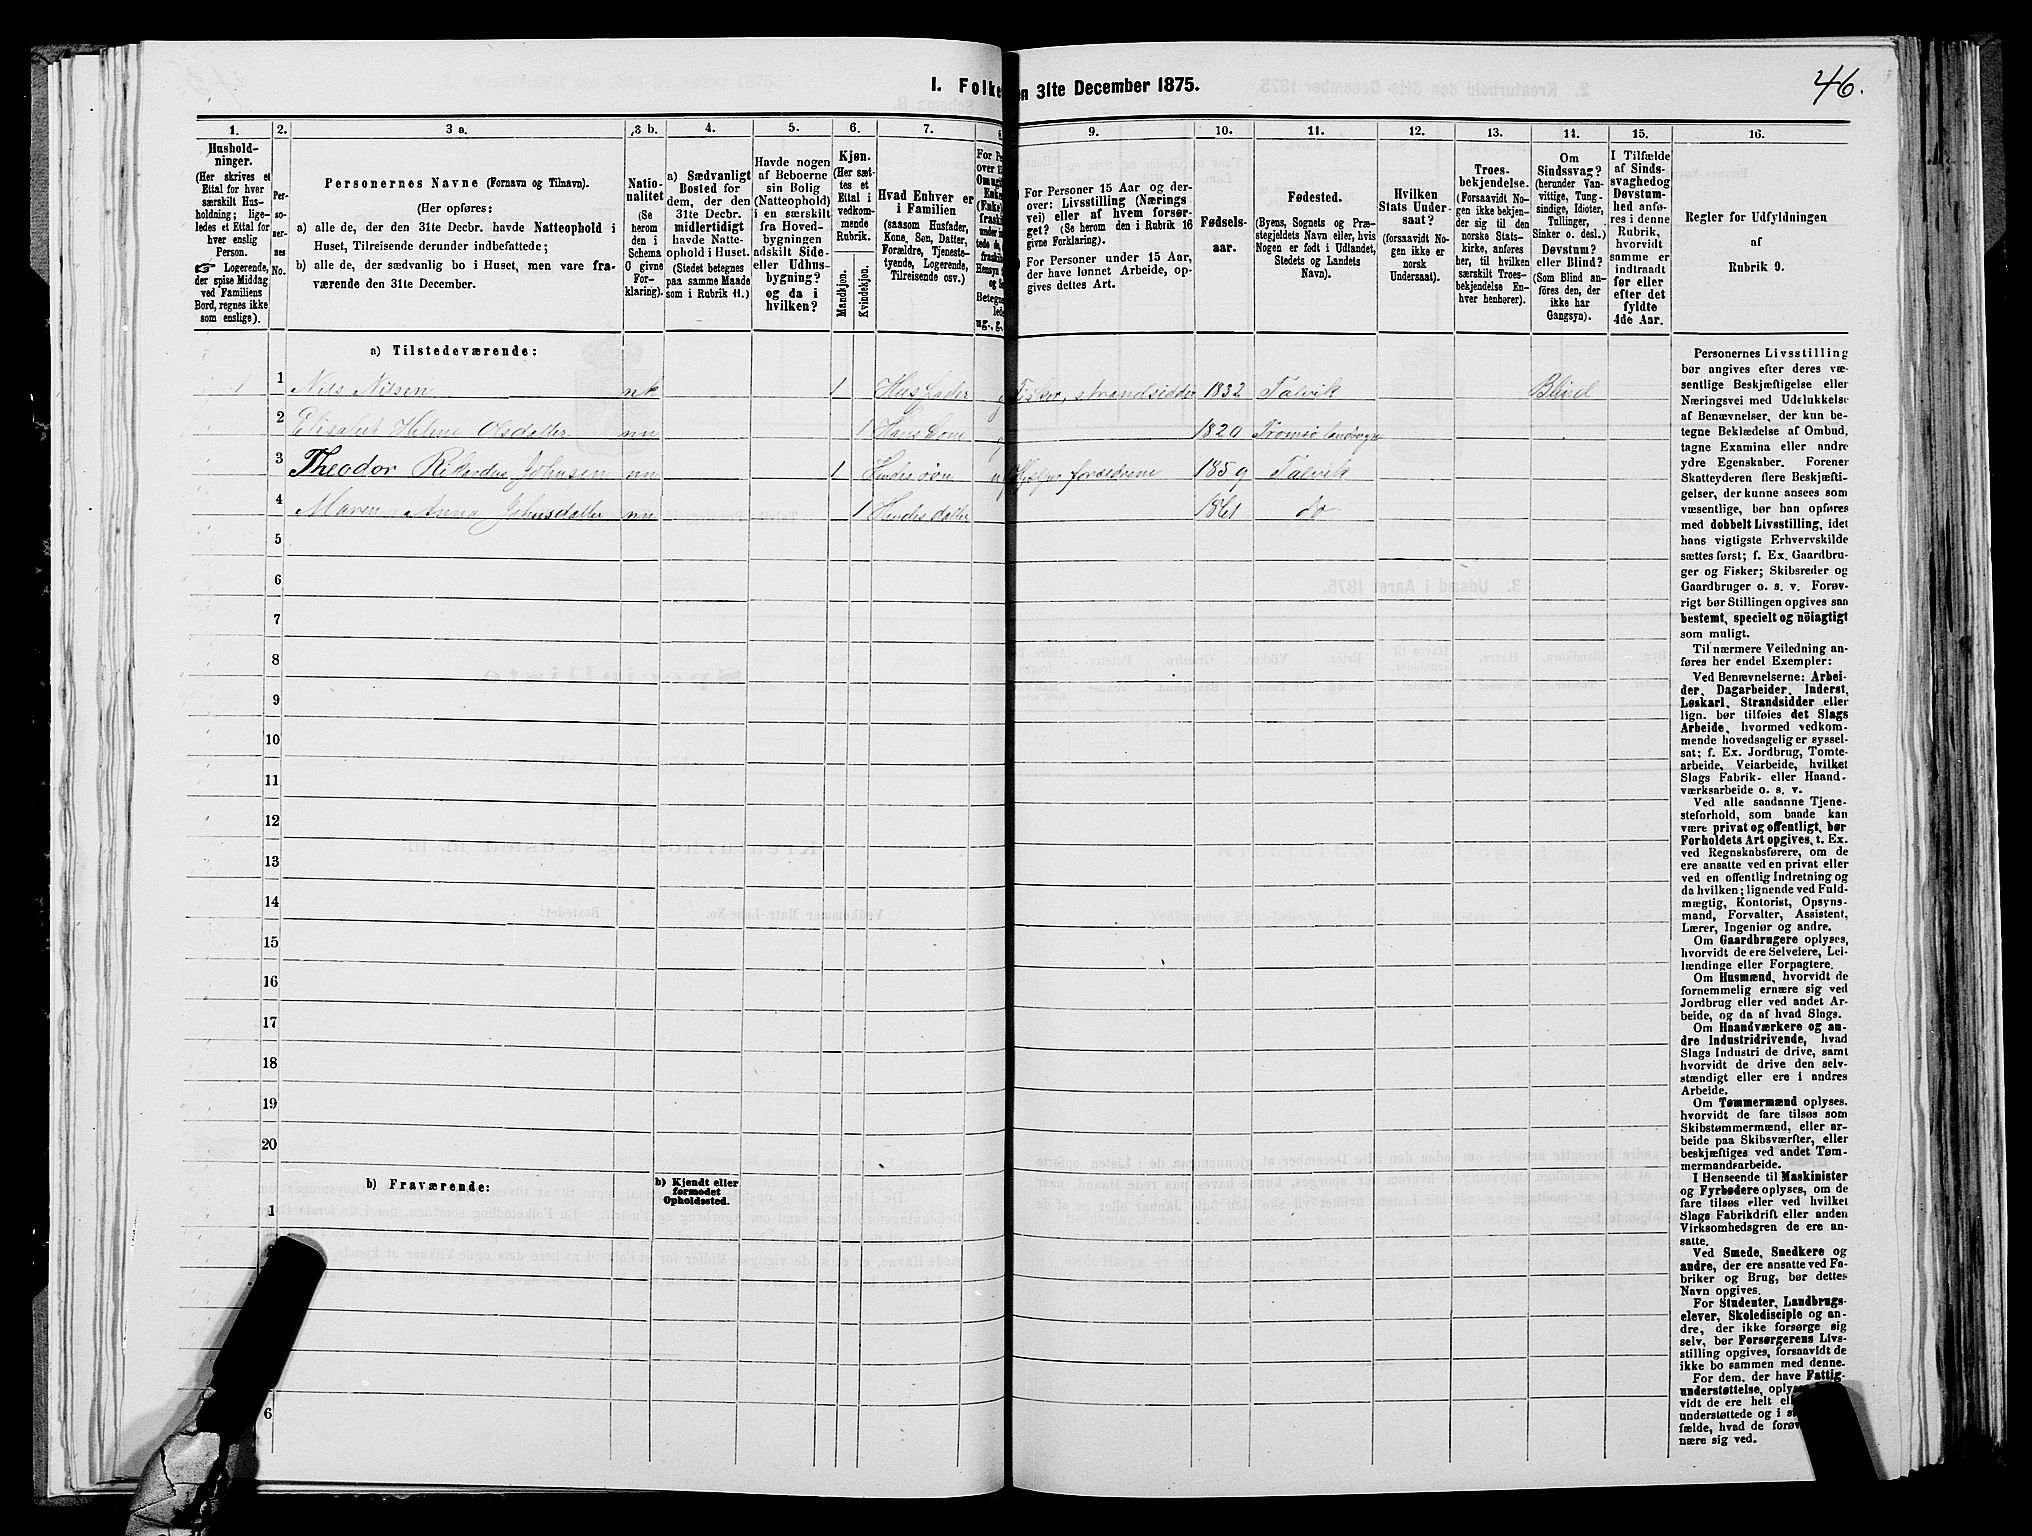 46.
1. Folke
n 31te December 1875.
1.
2.
3 a.
3 b.
4.
5.
6.
7.
8
9.
10.
11.
12.
13.
14.
15.
16.
Hushold-
ninger.
(Her skrives et
Ettal for hver
særskilt Hus-
holdning; lige-
ledes et Ettal for
hver enslig
Person.
Logerende,
der spise Middag
ved Familiens
Bord, regnes ikke
som enslige).
Per-
so-
ner-
nes
No.
Personernes Navne (Fornavn og Tilnavn).
(Her opføres:
a) alle de, der den 31te Decbr. havde Natteophold i
Huset, Tilreisende derunder indbefattede;
b) alle de, der sædvanlig bo i Huset, men vare fra-
værende den 31te December.
Natio-
nalitet
(Se
herom
den i
Schema
C givne
For-
klaring).
a) Sædvanligt
Bosted for
dem, der den
31te Decbr.
midlertidigt
havde Natte-
ophold i Huset.
(Stedet betegnes
paa samme Maade
som i Rubrik 11.)
Havde nogen
af Beboerne
sin Bolig
(Natteophold)
i en særskilt
fra Hoved-
bygningen
adskilt Side-
eller Udhus-
bygning?
og da i
hvilken?
Kjøn.
(Her sæt-
tes et
Ettal i
vedkom-
mende
Rubrik.
Mandkjøn.
Kvindekjøn.
Hvad Enhver er
i Familien
(saasom Husfader,
Kone, Søn, Datter,
Forældre, Tjeneste-
tyende, Logerende,
Tilreisende osv.)
For Personer 15 Aar og der-
over: Livsstilling (Nærings
vei) eller af hvem forsør-
get? (Se herom den i Rubrik 16
givne Forklaring).
For Personer under 15 Aar,
der have lønnet Arbeide, op-
gives dettes Art.
Fødsels-
aar.
Fødested.
(Byens, Sognets og Præ-
stegjeldets Navn eller, hvis
Nogen er født i Udlandet,
Stedets og Landets
Navn).
Hvilken
Stats Under-
saat?
(forsaavidt No-
gen ikke er
norsk
Undersaat).
Troes-
bekjendelse.
(Forsaavidt No-
gen ikke bekjen-
der sig til den
norske Stats-
kirke, anføres
her, til hvilken
særskilt Troes-
bekjendelse En-
hver henhører).
Om
Sindssvag?
(herunder Van-
vittige, Tung-
sindige, Idioter,
Tullinger,
Sinker o. desl.)
Døvstum?
eller Blind?
(Som Blind an-
føres den, der
ikke har
Gangsyn).
I Tilfælde
af Sinds-
svaghed og
Døvstum-
hed anfø-
res i denne
Rubrik,
hvorvidt
samme er
indtraadt
før eller
efter det
fyldte
4de Aar.
Regler for Udfyldningen
af
Rubrik 9.
a) Tilstedeværende:
1 1 Nils Nilsen nk 1 Husfader g Fisker, strandsidder 1832 Talvik Blind
2 Elisabet Helene Olsdatter nn 1 Hans Kone g 1820 Tromsø landsogn
3 Theodor Rikardus Johnsen nn 1 Hendes søn u Hjelper forældrene 1859 Talvik
4 Maren Anna Johnsdatter nn 1 Hendes datter 1861 do
5
6
7
8
9
10
11
12
13
14
15
16
17
18
19
20
b) Fraværende:
b) Kjendt eller
formodet
Opholdssted.
1
6
Personernes Livsstilling
bør angives efter deres væ-
sentlige Beskjæftigelse eller
Næringsvei med Udelukkelse
af Benævnelser, der kun be-
tegne Beklædelse af Ombud,
tagne Examina eller andre
ydre Egenskaber. Forener
Skatteyderen flere Beskjæfti-
gelser, der kunne ansees som
væsentlige, bør han opføres
med dobbelt Livsstilling, idet
hans vigtigste Erhvervskilde
sættes først; f. Ex. Gaardbru-
ger og Fisker; Skibsreder og
Gaardbruger o. s. v. Forøv-
rigt bør Stillingen opgives saa
bestemt, specielt og nöiagtigt
som muligt.
Til nærmere Veiledning an-
føres her endel Exempler:
Ved Benævnelserne: Arbei-
der, Dagarbeider, Inderst,
Løskarl, Strandsidder eller
lign. bør tilføies det Slags
Arbeide, hvormed vedkom-
mende hovedsagelig er syssel-
sat; f. Ex. Jordbrug, Tomte-
arbeide, Veiarbeide, hvilket
Slags Fabrik- eller Haand-
værksarbeide o. s. v.
Ved alle saadanne Tjene-
steforhold, som baade kan
være privat og offentligt, bør
Forholdets Art opgives, t. Ex.
ved Regnskabsførere, om de
ere ansatte ved en privat eller
ved en offentlig Indretning og
da hvilken; lignende ved Fuld-
mægtig, Kontorist, Opsyns-
mand, Forvalter, Assistent,
Lærer, Ingeniør og andre.
Om Gaardbrugere oplyses,
hvorvidt de ere Selveiere, Lei-
lændinge eller Forpagtere.
Om Husmænd, hvorvidt de
fornemmelig ernære sig ved
Jordbrug eller ved andet Ar-
beide, og da af hvad Slags.
Om Haandværkere og an-
dre Industridrivende, hvad
Slags Industri de drive, samt
hvorvidt de drive den selv-
stændigt eller ere i andres
Arbeide.
Om Tømmermænd oplyses,
hvorvidt de fare tilsøs som
Skibstømmermænd, eller ar-
beide paa Skibsværfter, eller
beskjæftiges ved andet Tøm-
mermandsarbeide.
I Henseende til Maskinister
og Fyrbødere oplyses, om de
fare tilsøs eller ved hvilket
Slags Fabrikdrift eller anden
Virksomhedsgren de ere an-
satte.
Ved Smede, Snedkere og
andre, der ere ansatte ved Fa-
briker og Brug, bør dettes
Navn opgives.
For Studenter, Landbrugs-
elever, Skoledisciple og an-
dre, der ikke forsørge sig
selv, bør Forsørgerens Livs-
stilling opgives, forsaavidt de
ikke bo sammen med denne.
For dem, der have Fattig-
understøttelse, oplys
vidt de ere helt el
understøttede og i s
fælde, hvad de forøv
nære sig ved.